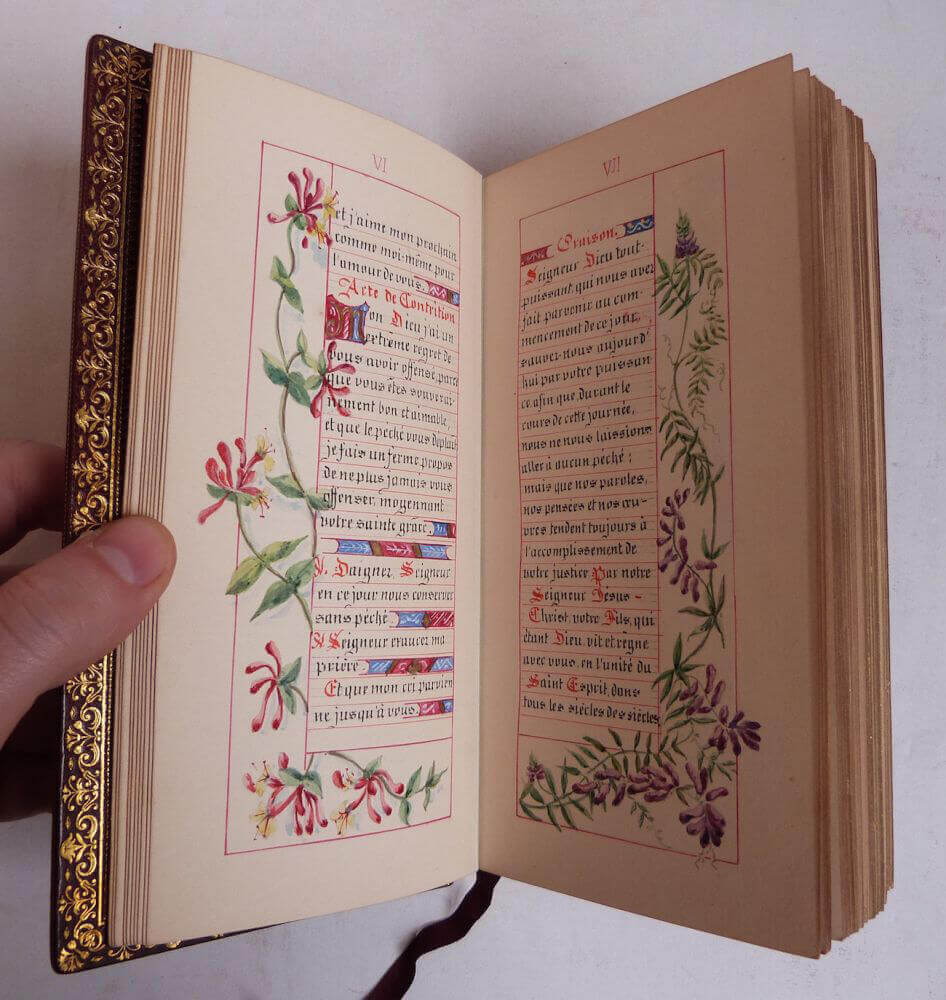 VI
et j'aime mon prochain
comme moi-même pour
l'amour de vous.
Acte de Contrition
Mon Dieu j'ai un
extrême regret de
vous avoir offensé, parce
que vous êtes souverai-
nement bon et aimable,
et que le péché vous déplait
je fais un ferme propos
de ne plus jamais vous
offenser, moyennant
votre sainte grâce.
V. Daigner, Seigneur
en ce jour nous conserver
sans péché
R Seigneur exaucez ma
prière.
Et que mon cri parvien
ne jusqu'à vous.
VII
Oraison.
Seigneur Dieu tout-
puissant qui nous avez
fait parvenir au com-
mencement de ce jour,
sauvez-nous aujourd'
hui par votre puissan
ce, afin que, durant le
cours de cette journée,
nous ne nous laissions
aller à aucun péché;
mais que nos paroles,
nos pensées et nos œu-
vres tendent toujours à
l'accomplissement de
votre justice Par notre
Seigneur Jésus-
Christ, votre Fils, qui
étant Dieu, vit et règne
avec vous, en l'unité du
Saint Esprit, dans
tous les siècles des siècles